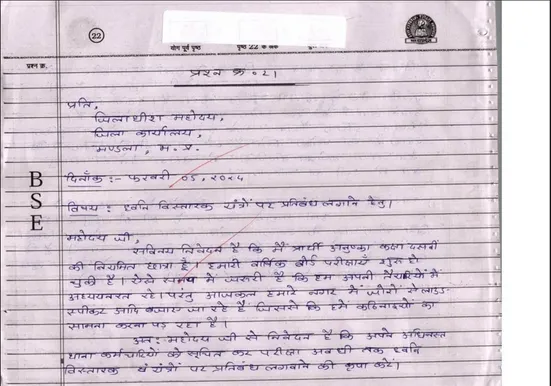 22
योग पूर्व पृष्ठ
पृष्ठ 22 के अंक
प्रश्न क्र.
प्रश्न क्र०21
प्रति,
जिलाधीश महोदय,
जिला कार्यालय,
मण्डला, म.प्र.
BSE
दिनाँक :- फरवरी 05, 2024
विषय : ध्वनि विस्तारक यंत्रों पर प्रतिबंध लगाने हेतु।
महोदय जी,
सविनय निवेदन है कि मैं प्रार्थी अनुष्का कक्षा दसवीं
की नियमित छात्रा हूँ। हमारी वार्षिक बोर्ड परीक्षाएँ शुरू हो
चुकी है। ऐसे समय में जरूरी है कि हम अपनी तैयारियों में
अध्ययनरत रहे। परंतु आजकल हमारे नगर में जोरों से लाउड-
स्पीकर आदि बजाए जा रहे है जिससे कि हमें कठिनाइयों का
सामना करना पड़ रहा है।
अतः महोदय जी से निवेदन है कि अपने अधिनस्त
थाना कर्मचारियों को सूचित कर परीक्षा अवधी तक ध्वनि
विस्तारक यंत्रों पर प्रतिबंध लगवाने की कृपा करें।